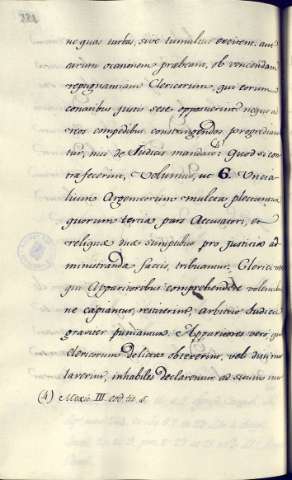 221
ne quas turbas, sive tumultus excitent, aut
earum occasionem præbeant, ob vencendam
repugnantiam Clericorum, qui eorum
conatibus justis sese opposuerint neque ad
reos compedibus constringendos progredian
tur, nisi de Judicis mandato. Quod si con
tra fecerint, Volumus, ut 6. Uncia
lium Argenteorum mulcta plectantur
quorum tertia pars Accusatori, et
reliquæ duæ sumptibus pro justicia ad
ministranda factis, tribuantur. Clerici vero
qui Apparitoribus comprehendere volentibus
ne capiantur, resisterint, arbitrio Judicis
graviter puniantur. Apparitores vero qui
Clericorum delicta obtexerint, vel dissimu
laverint, inhabiles declarentur ad
(4) Mexic. III. eod. tit. §.